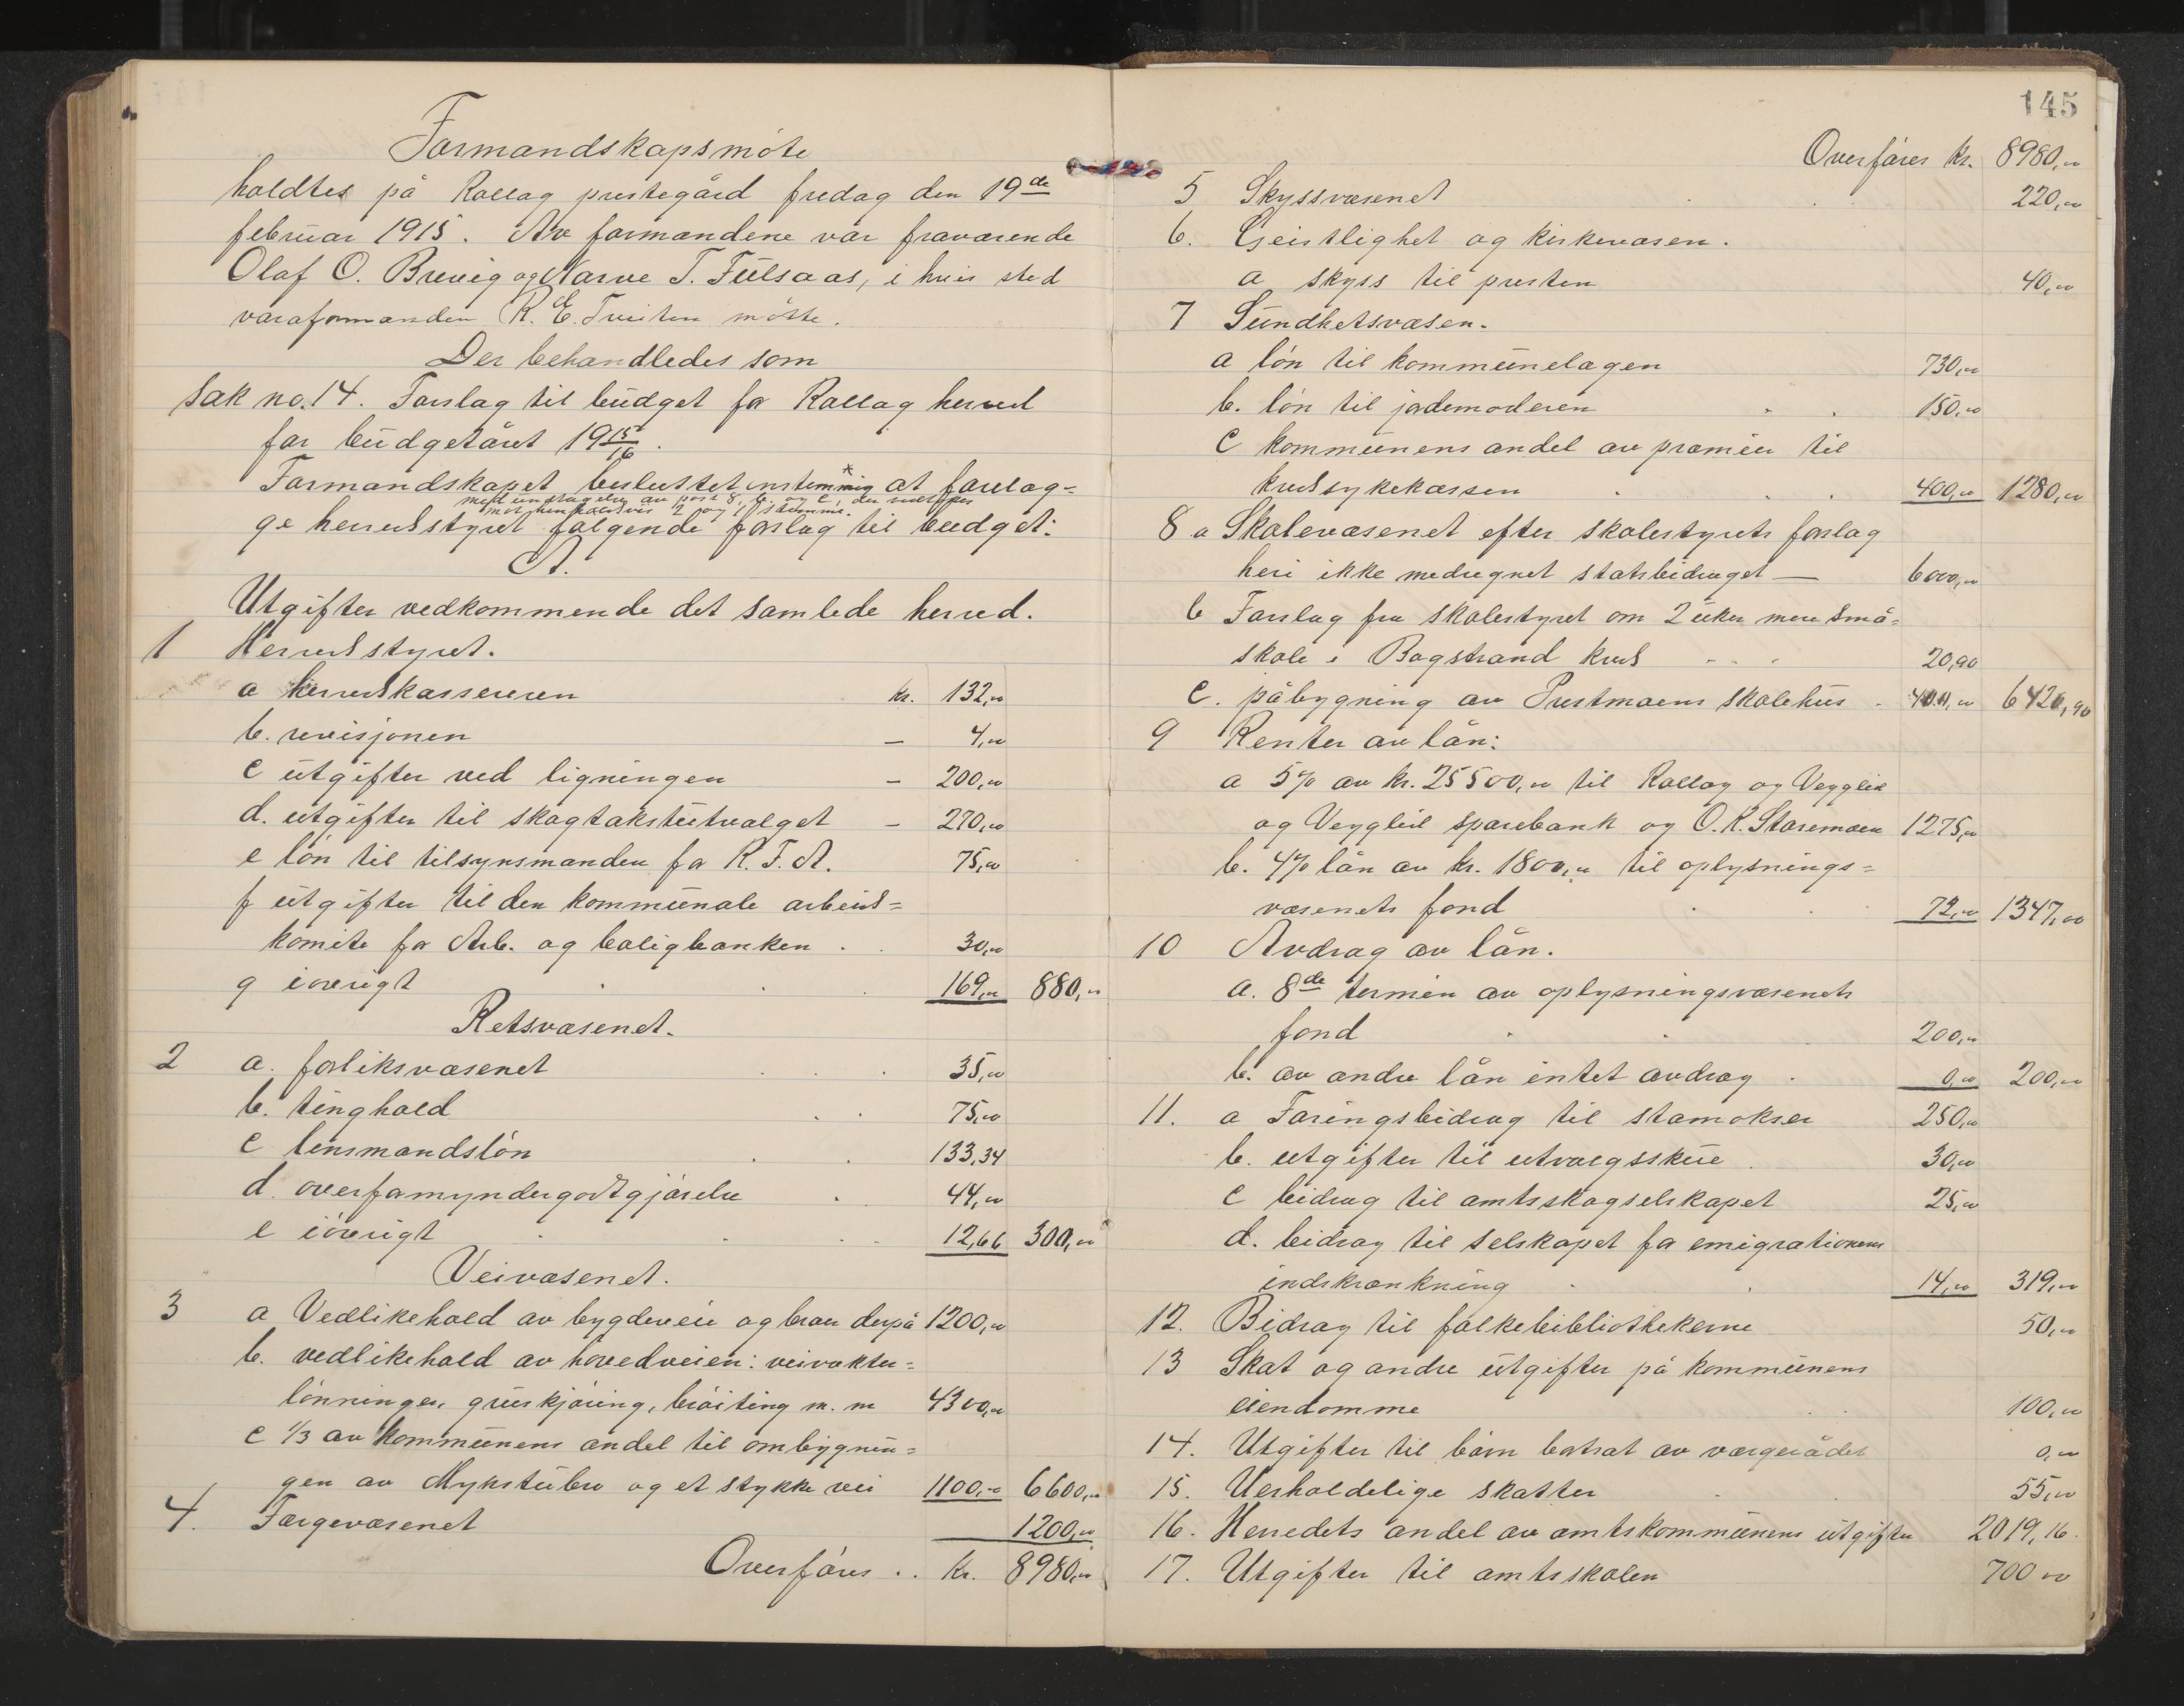 Formandskapsmöte
holdtes på Rollag prestegård fredag den 19de
februar 1915. Av formandene var fraværende
Olaf O. Brevig og Narve T. Fulsaas, i hvis sted
varaformanden R. E. Tveiten mötte.
Der behandledes som
Sak no. 14. Forslag til budget for Rollag herred
for budgetåret 1915/16.
Formandskapet besluttet enstemmig* at forelæg=
med undtagelse av post 8, b. og c, der vedtokes
mot henholdsvis 2 og 1 stemme.
ge herredstyret følgende forslag til budget:
A.
Utgifter vedkommende det samlede herred.
1 Herredstyret.
a herredskassereren kr. 132,00
b. revisjonen – 4,00
c utgifter ved ligningen – 200,00
d. utgifter til skogtakstutvalget – 270,00
e lön til tilsynsmanden for R. F. A. 75,00
f utgifter til den kommunale arbeids=
komite for Arb. og boligbanken . . 30,00
g iövrigt . . . 169,00 880,00
Retsvæsenet.
2 a. forliksvæsenet . . . 35,00
b. tinghold . . 75,00
c lensmandslön . . 133,34
d. overformyndergodtgjörelse . 44,00
e iövrigt . . . . 12,66 300,00
Veivæsenet.
3 a Vedlikehold av bygdeveie og broer derpå 1200,00
b. vedlikehold av hovedveien: veivokter=
lönninger, gruskjöring, bröiting m. m 4300,00
c 1/3 av kommunens andel til ombygnin=
gen av Mykstubru og et stykke vei 1100,00 6600,00
4. Færgevæsenet 1200,00
Overföres . . kr. 8980,00
145
Overföres kr. 8980,00
5 Skyssvæsenet . . 220,00
6. Geistlighet og kirkevæsen.
a skyss til presten 40,00
7 Sundhetsvæsen.
a lön til kommunelægen 730,00
b. lön til jordemoderen . . 150,00
c kommunens andel av præmien til
kredssykekassen . . . 400,00 1280,00
8 a Skolevæsenet efter skolestyrets forslag
heri ikke medregnet statsbidraget — 6000,00
b Forslag fra skolestyret om 2 uker mere små=
skole i Bogstrand kreds . . . 20,90
c. påbygning av Prestmoens skolehus . 400,00 6420,90
9 Renter av lån:
a 5% av kr. 25500,00 til Rollag og Vegglid
og Vegglid sparebank og O. K. Staremoen 1275,00
b. 4% lån av kr. 1800,00 til oplysnings=
væsenets fond . . 72,00 1347,00
10 Avdrag av lån.
a. 8de termin av oplysningsvæsenets
fond . . 200,00
b. av andre lån intet avdrag . 0,00 200,00
11. a Foringsbidrag til stamokser 250,00
b. utgifter til utvalgsskue . 30,00
c bidrag til amtsskogselskapet 25,00
d. bidrag til selskapet for emigrationens
indskrænkning . . 14,00 319,00
12. Bidrag til folkebibliothekerne 50,00
13 Skat og andre utgifter på kommunens
eiendomme . . 100,00
14. Utgifter til börn bortsat av vergerådet 0,00
15. Uerholdelige skatter . . 55,00
16. Herredets andel av amtskommunens utgifter 2019,16.
17. Utgifter til amtsskolen 700 00